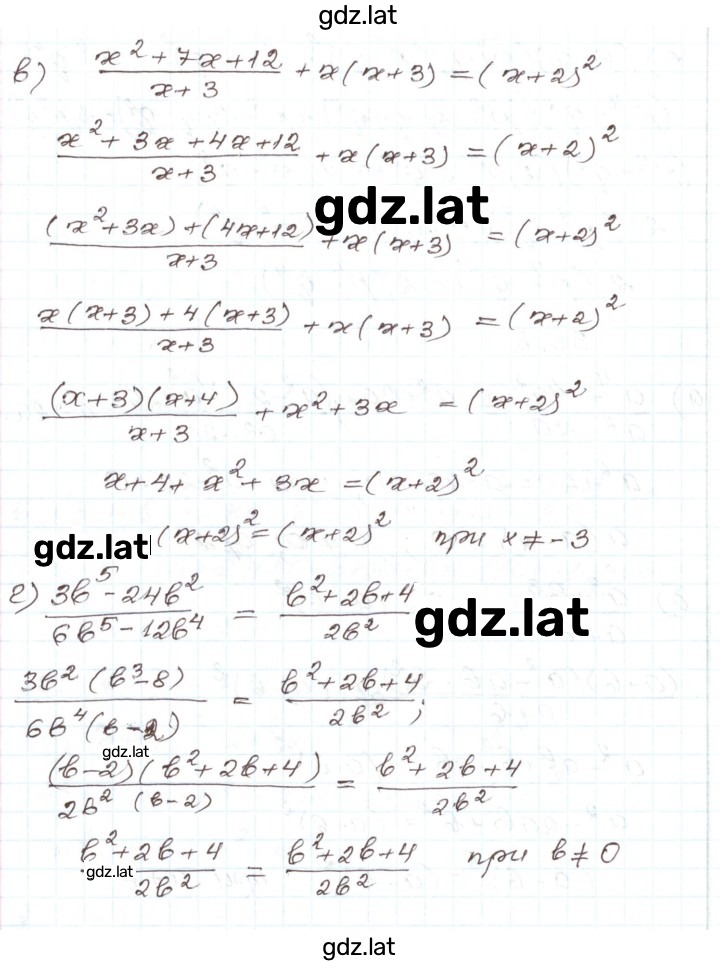 gdz.lat
в) (x² + 7x + 12)/(x + 3) + x(x + 3) = (x + 2)²
(x² + 3x + 4x + 12)/(x + 3) + x(x + 3) = (x + 2)²
gdz.lat
((x² + 3x) + (4x + 12))/(x + 3) + x(x + 3) = (x + 2)²
(x(x + 3) + 4(x + 3))/(x + 3) + x(x + 3) = (x + 2)²
((x + 3)(x + 4))/(x + 3) + x² + 3x = (x + 2)²
x + 4 + x² + 3x = (x + 2)²
gdz.lat (x + 2)² = (x + 2)² при x ≠ -3
г) (3b⁵ - 24b²)/(6b⁵ - 12b⁴) = (b² + 2b + 4)/(2b²)
gdz.lat
(3b²(b³ - 8))/(6b⁴(b - 2)) = (b² + 2b + 4)/(2b²);
gdz.lat
((b - 2)(b² + 2b + 4))/(2b² (b - 2)) = (b² + 2b + 4)/(2b²)
(b² + 2b + 4)/(2b²) = (b² + 2b + 4)/(2b²) при b ≠ 0
gdz.lat
gdz.lat